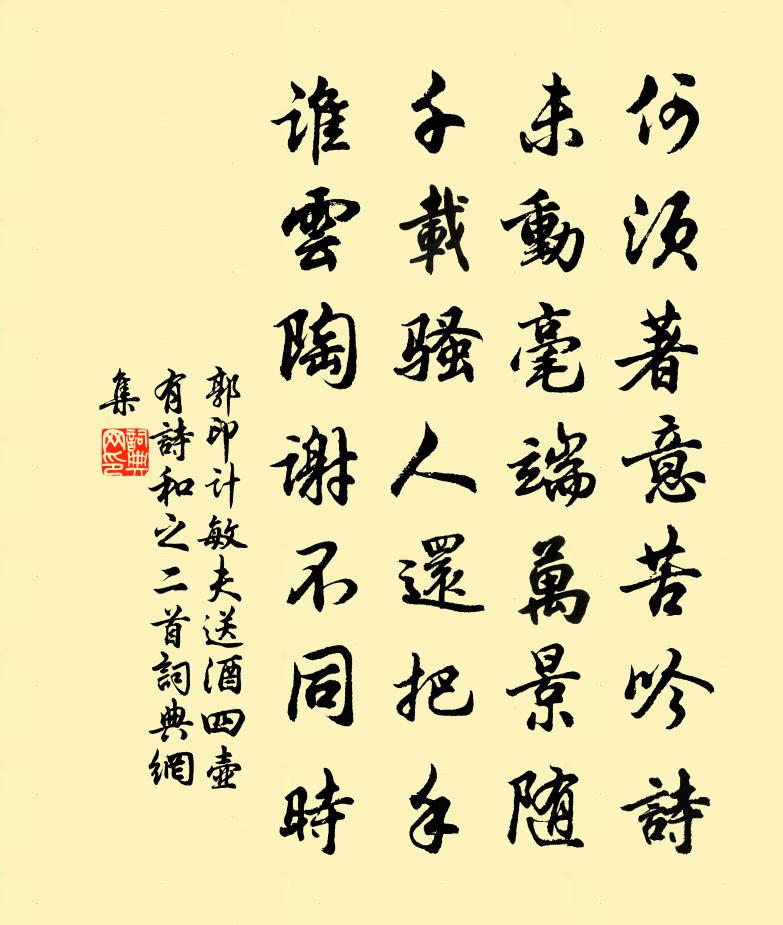 何須著意苦吟詩
未動毫端萬景随
千載騷人還把手
誰雲陶謝不同時
郭印計敏夫送酒四壺
有詩和之二首詞典網
集
詞典网印